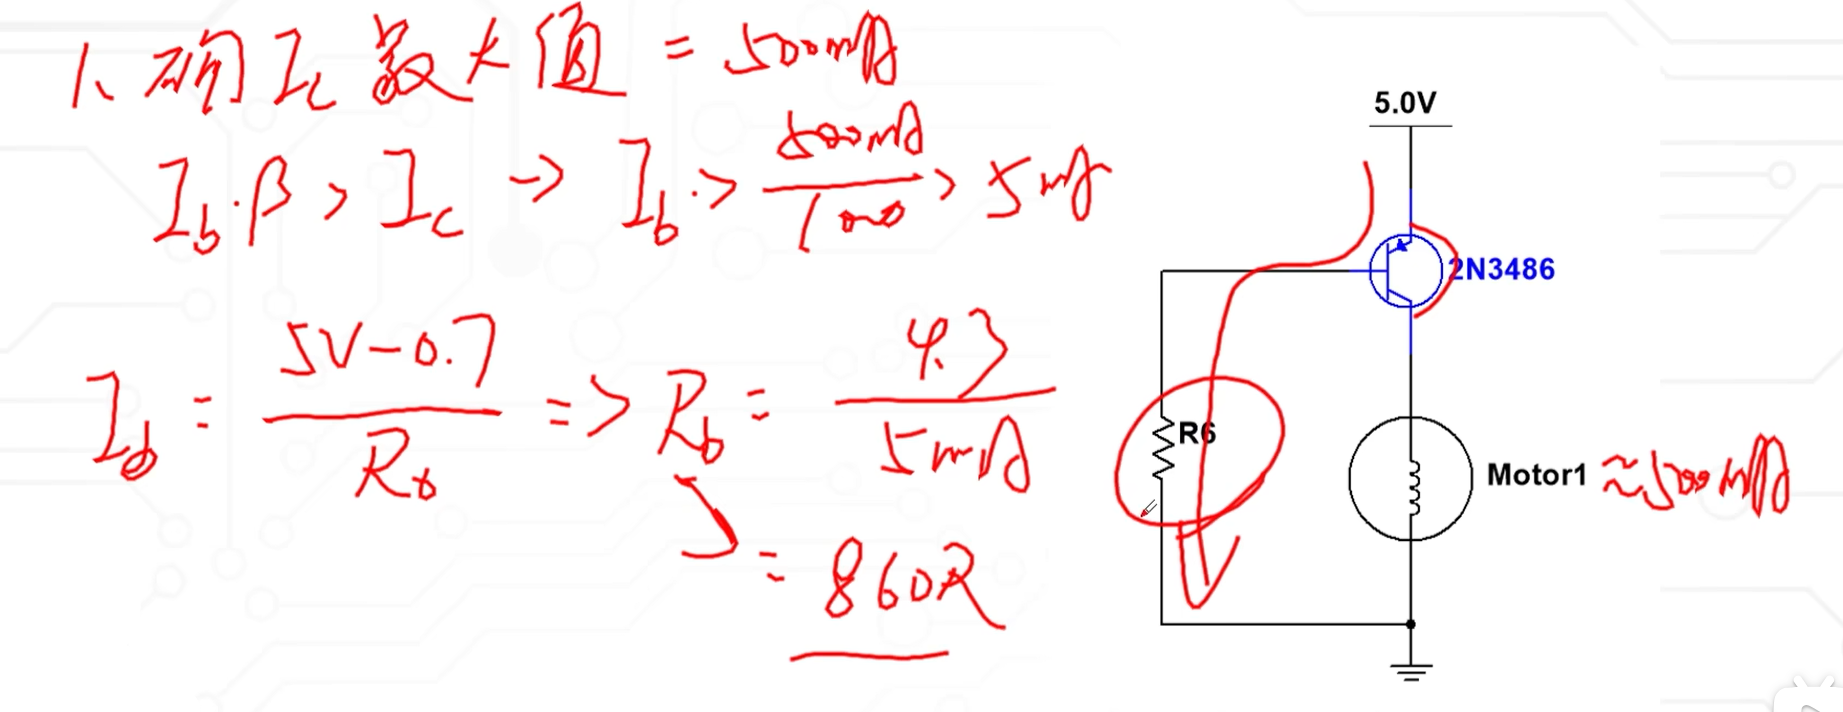 1、确Ic最大值 = 500mA
Ib·β > Ic → Ib > 500mA / 100 > 5mA
Ib = 5V-0.7 / Rb => Rb = 4.3 / 5mA
= 860R
5.0V
2N3486
R6
Motor1 ≈500mA